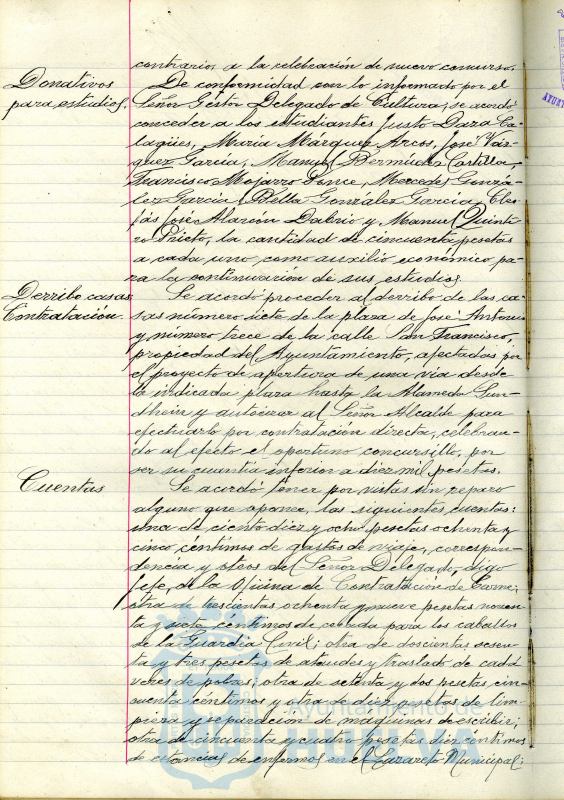 contrario, a la celebración de nuevo concurso.
Donativos
para estudios.
De conformidad con lo informado por el
Señor Gestor Delegado de Cultura, se acordó
conceder a los estudiantes Justo Daza Ca-
lagües, María Marquez Arcos, José Váz-
quez García, Manuel Bermúdez Castilla,
Francisco Mojarro Ponce, Mercedes Gonzá-
lez García, Bella González García,
José Alarcón Dabrio y Manuel Quinte-
ro Prieto, la cantidad de cincuenta pesetas
a cada uno como auxilio económico pa-
ra la continuación de sus estudios.
Derribo casas
Contratación.
Se acordó proceder al derribo de las ca-
sas número siete de la plaza de José Antonio
y número trece de la calle San Francisco,
propiedad del Ayuntamiento, afectadas por
el proyecto de apertura de una vía desde
la indicada plaza hasta la Alameda Sun-
dheim y autorizar al Señor Alcalde para
efectuarlo por contratación directa, celebran-
do al efecto el oportuno concursillo, por
ser su cuantía inferior a diez mil pesetas.
Cuentas
Se acordó tener por vistas sin reparo
alguno que oponer, las siguientes cuentas:
una de ciento diez y ocho pesetas ochenta y
cinco céntimos de gastos de viaje, correspon-
dencia y otros del Señor Delegado, digo
Jefe, de la Oficina de Contratación de Carne;
otra de trescientas ochenta y nueve pesetas noven-
ta y siete céntimos de cebada para los caballos
de la Guardia Civil; otra de doscientas sesen-
ta y tres pesetas de ataudes y traslado de cadá
veres de pobres; otra de setenta y dos pesetas cin-
cuenta céntimos y otra de diez pesetas de lim-
pieza y reparación de maquinas de escribir;
otra de cincuenta y cuatro pesetas diez céntimos
de estancias de enfermos en el Lazareto Municipal;
Ayuntamiento de
HUELVA